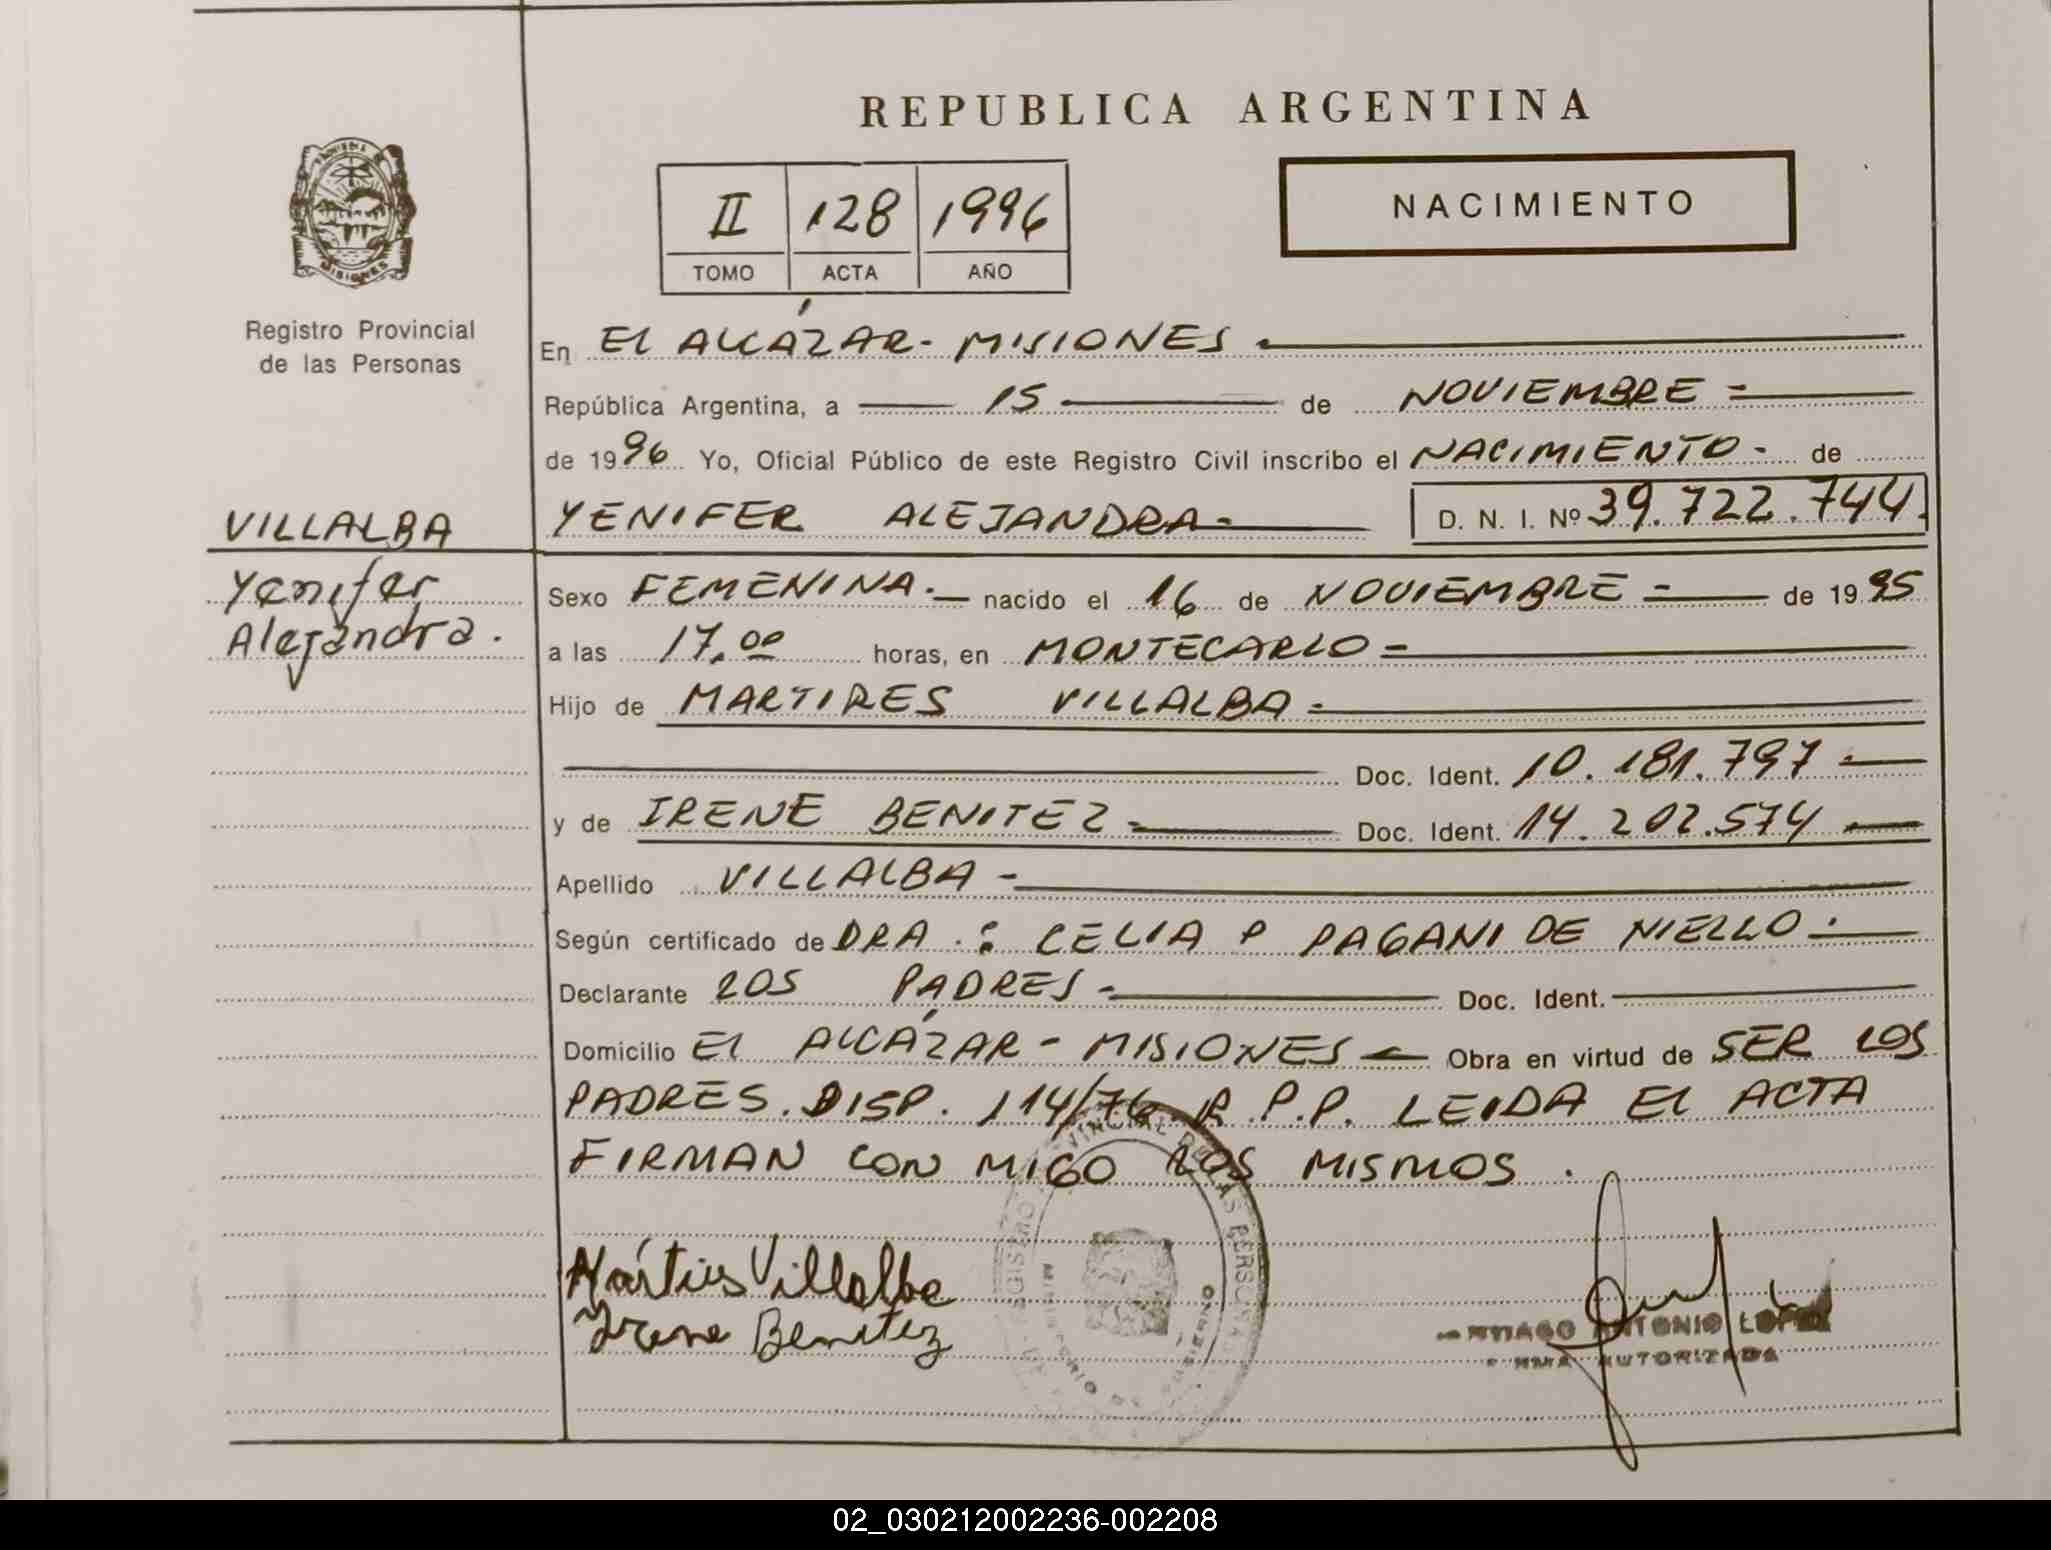 REPUBLICA ARGENTINA
II 128 1996
TOMO ACTA AÑO
NACIMIENTO
MISIONES
Registro Provincial
de las Personas
VILLALBA
Yenifer
Alejandra.
En EL ALCÁZAR- MISIONES
República Argentina, a 15 de NOVIEMBRE
de 1996 Yo, Oficial Público de este Registro Civil inscribo el NACIMIENTO- de
YENIFER ALEJANDRA- D. N. I. Nº 39.722.744.
Sexo FEMENINA.- nacido el 16 de NOVIEMBRE de 1995
a las 17,00 horas, en MONTECARLO
Hijo de MARTIRES VILLALBA
Doc. Ident. 10.181.797
y de IRENE BENITEZ Doc. Ident. 14.202.574
Apellido VILLALBA
Según certificado de DRA.: CELIA P PAGANI DE NIELLO.
Declarante LOS PADRES Doc. Ident.
Domicilio EL ALCÁZAR - MISIONES Obra en virtud de SER LOS
PADRES. DISP. 114/76 R.P.P. LEIDA EL ACTA
FIRMAN CON MIGO LOS MISMOS.
Mártires Villalba
Irene Benitez
REGISTRO PROVINCIAL DE LAS PERSONAS
MINISTERIO DE GOBIERNO
ANTONIO LOPEZ
AUTORIZADA
02_030212002236-002208